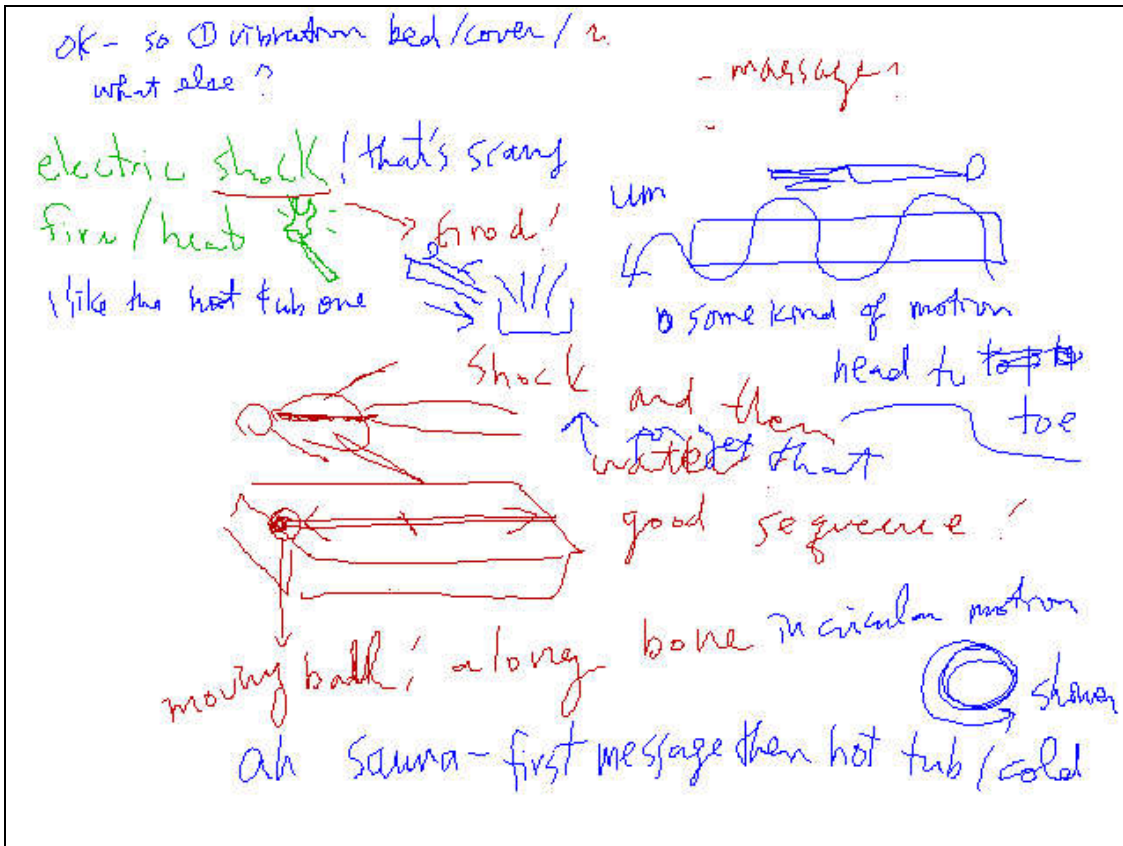 OK - so ① vibration bed/cover/
what else?
- massage?
-
electric shock
! that's scary
fire/heat
Good!
um
I like the hot tub one
some kind of motion
head to
toe
shock
and then
water
for jet that
good sequence!
moving ball! along bone
in circular motion
shower
ah sauna - first message then hot tub/cold